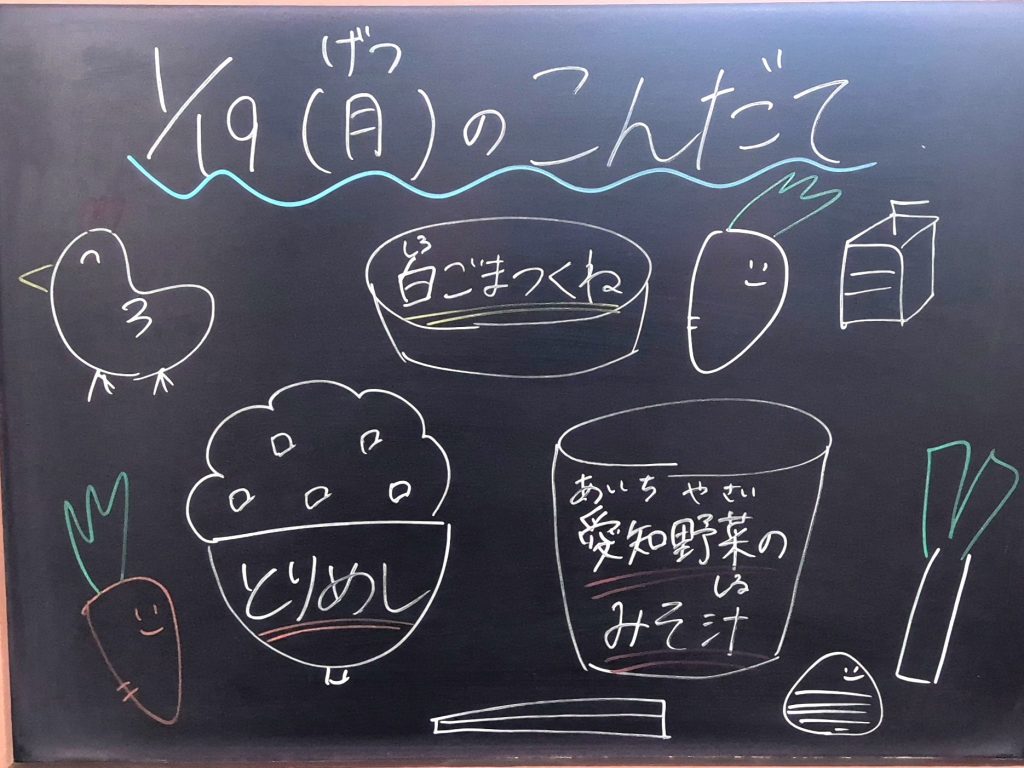 げつ
1/19(月)のこんだて
しろ
白ごまつくね
とりめし
あいち やさい
愛知野菜の
しる
みそ汁